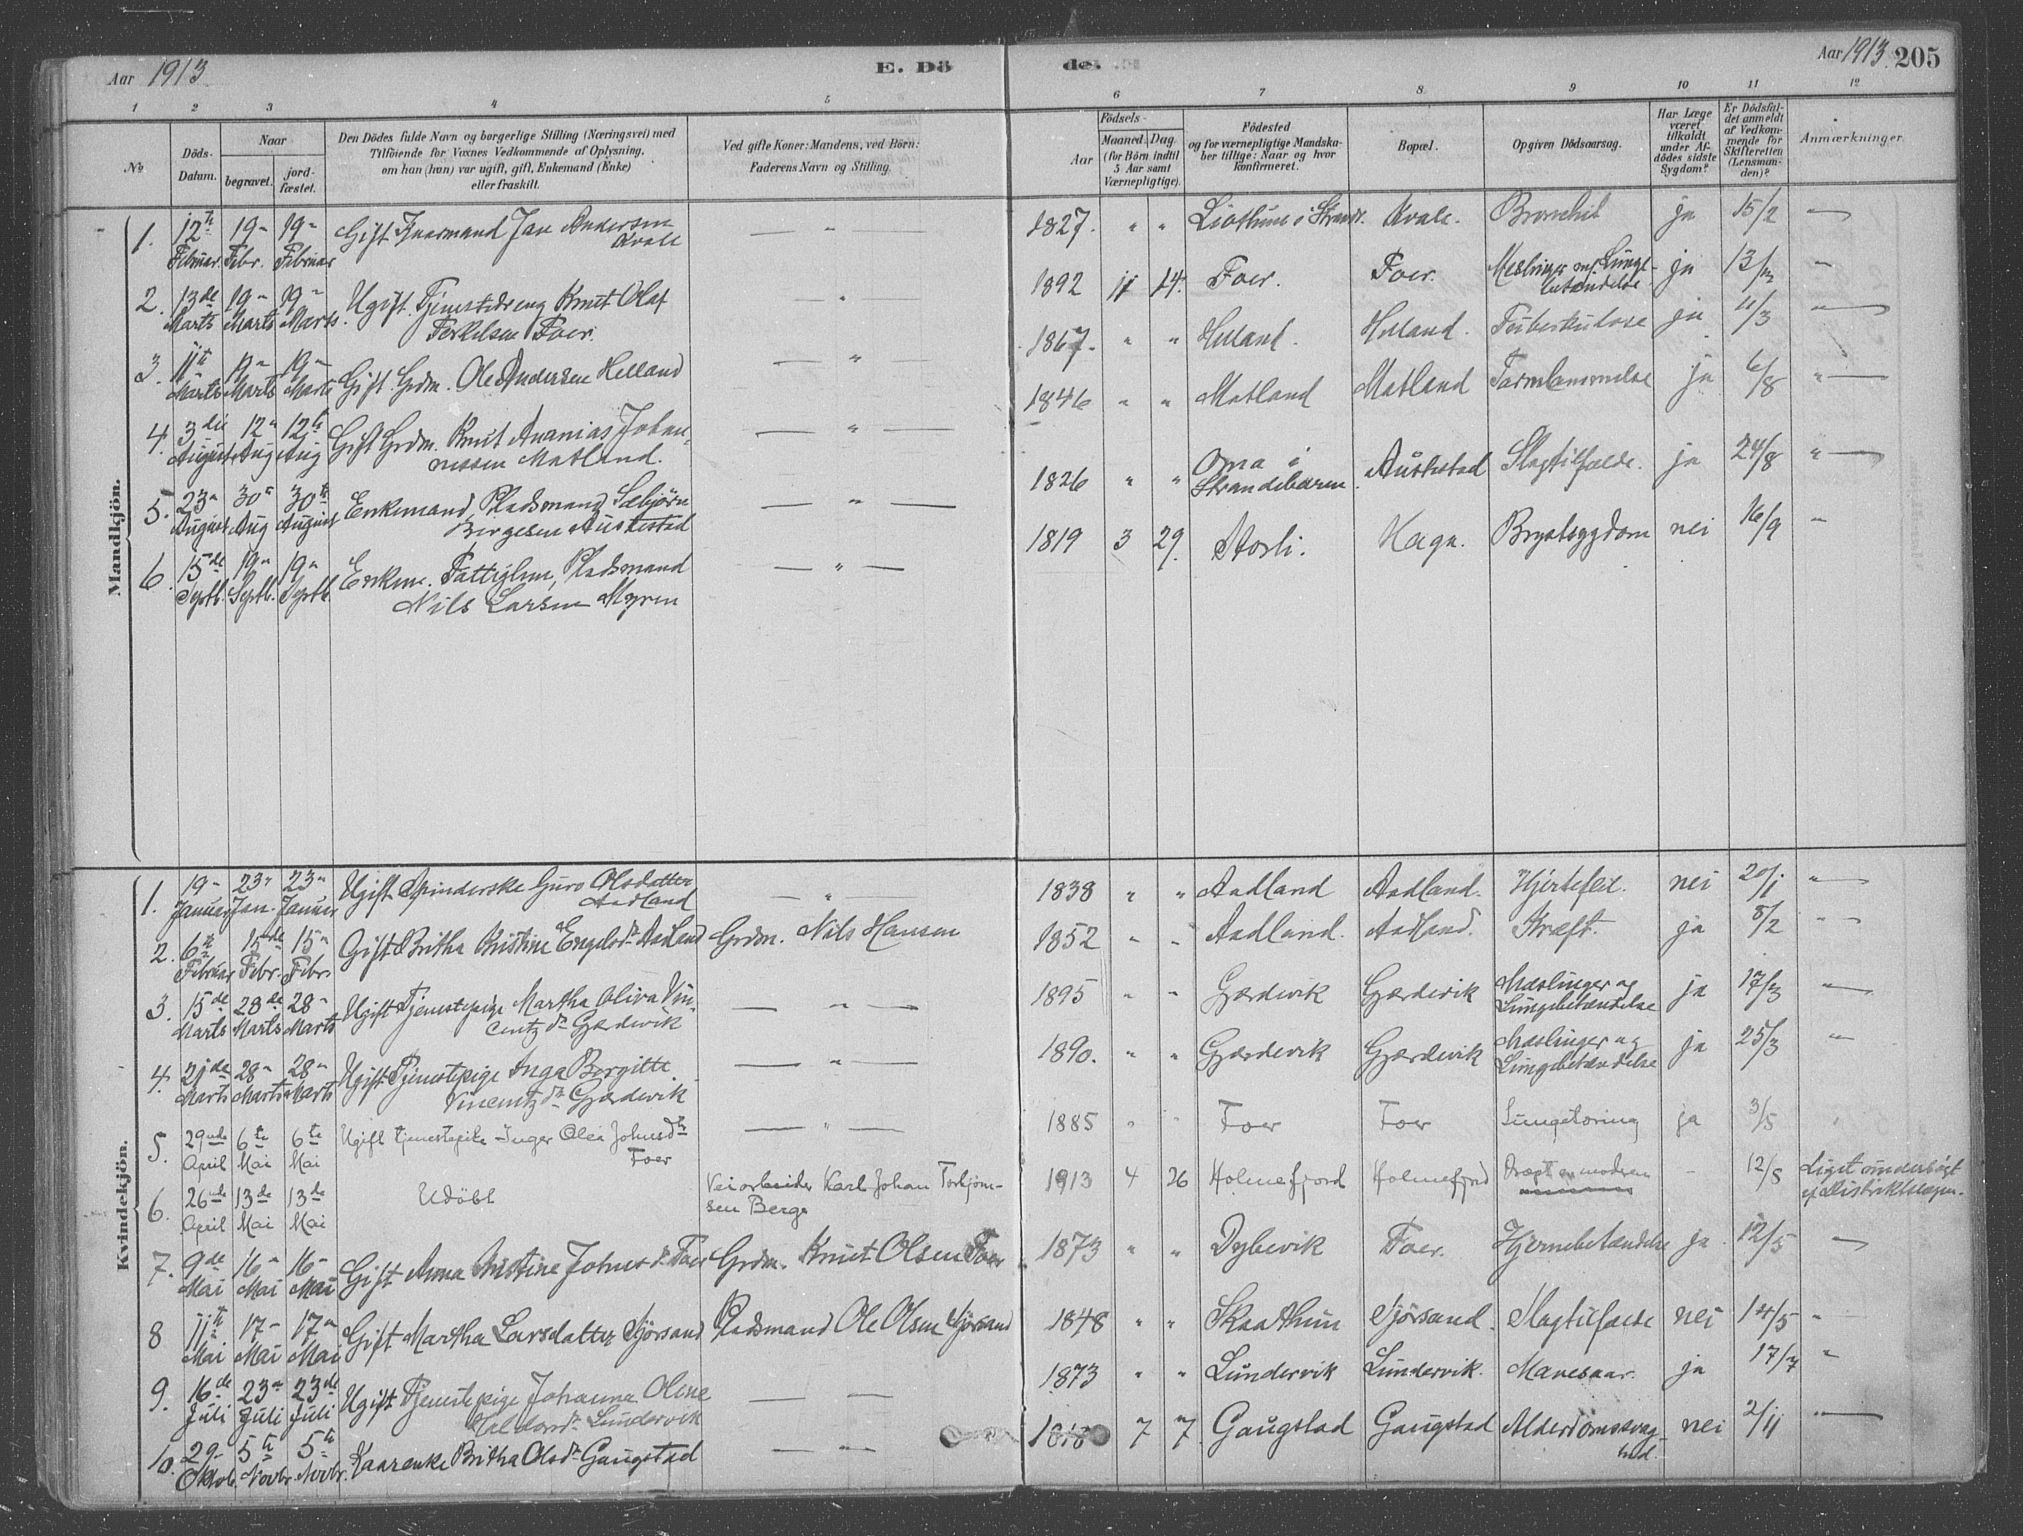 Aar 1913
E. Dö
de.
Aar 1913. 205
1 2 3 4 5 6 7 8. 9 10 11 12
No
Döds-
Datum.
Naar
begravet.
jord-
fæstet.
Den Dödes fulde Navn og borgerlige Stilling (Næringsvei) med
Tilföiende for Voxnes Vedkommende af Oplysning,
om han (hun) var ugift, gift, Enkemand (Enke)
eller fraskilt.
Ved gifte Koner: Mandens, ved Börn:
Faderens Navn og Stilling.
Födsels-
Aar
Maaned. Dag.
(for Börn indtil
5 Aar samt
Værnepligtige).
Födested
og for værnepligtige Mandska-
ber tillige: Naar og hvor
konfirmeret.
Bopæl.
Opgiven Dödsaarsag.
Har Læge
været
tilkaldt
under Af-
dödes sidste
Sygdom?
Er Dödsfal-
det anmeldt
af Vedkom-
mende for
Skifteretten
(Lensman-
den)?
Anmærkninger.
Mandkjön.
1. 12te 19 " 19 " Gift Kaarmand Jan Andersen — " — 1827. " " Liothuns i Strandv. Kvale. Bronchit ja 15/2 "
Februar Febr. Februar Kvale
2. 13de 19 " 19 " Ugift Tjenestdreng Knut Olaf — " — 1892 11 14. Foer. Foer. Meslinger m/ Lunge- ja 13/3 "
Marts Marts Marts. Terkelsen Foer. betændelse
3. 11te 19 " 19 " Gift Grdm. Ole Andersen Helland — " — 1867. " " Helland. Helland. Tuberkulose ja 11/3 "
Marts Marts Marts
4. 3die 12 " 12te Gift Grdm. Knut Ananias Johan- — " — 1846 " " Matland Matland Tarmlammelse ja 6/8 "
August Aug Aug nessen Matland.
5. 23 " 30 " 30te Enkemand, Pladsmand Sæbjörn — " — 1826 " " Oma i Strandebarm. Austestad Slagtilfælde. ja 24/8 "
August Aug August Börgesen Austestad
6. 15de 19 " 19 " Enkem. Fattiglem, Pladsmand — " — 1819 3 29. Storli. Haga. Brystsygdom nei 16/9 "
Septb. Septb. Septb. Nils Larsen Myren
Kvindekjön.
1. 19 " 23 " 23 " Ugift Spinderske Guro Olsdatter — " — 1838 " " Aadland Aadland. Hjertefeil. nei 20/1 "
Januar Jan. Januar Aadland
2. 6te 15de 15 " Gift Britha Kristine Engelsdr Aadland Grdm. Nils Hansen 1852 " " Aadland. Aadland. Kræft. ja 8/2 "
Februar Febr. Febr.
3. 15de 28de 28 " Ugift Tjenestepige Martha Oliva Vin- — " — 1895 " " Gjærdevik Gjærdevik Mæslinger og ja 17/3 "
Marts Marts Marts centz dr Gjærdevik Lungebetændelse
4. 21de 28 " 28 " Ugift Tjenestepige Anga Bergitte — " — 1890. " " Gjærdevik Gjærdevik Mæslinger og ja 25/3 "
Marts Marts Marts Vincentz dr Gjærdevik Lungebetændelse
5. 29nde 6te 6te Ugift tjenestepike Inger Olea Johnsdtr — " — 1885 " " Foer Foer Lungetæring ja 3/5 "
April Mai Mai Foer
6. 26nde 13de 13de Udöbt Veiarbeider Karl Johan Torbjörn- 1913 4 26 Holmefjord Holmefjord Dræpt av moderen - 12/5 Liget undersögt
April Mai Mai sen Berge af Distriktslægen.
7. 9de 16 " 16 " Gift Anna Kristine Johnsdr Foer Grdm. Knut Olsen Foer 1873 " " Dybevik Foer. Hjernebetændelse ja 12/5 "
Mai Mai Mai
8 11te 17 " 17 " Gift Martha Larsdatter Sjörsand Pladsmand Ole Olsen Sjörsand 1848 " " Skaathun Sjörsand. Slagtilfælde nei 14/5 "
Mai Mai Mai
9. 16de 23 " 23de Ugift Tjenestepige Johanna Oline — — 1873 " " Lundervik Lundervik. Mavesaar. ja 17/7 "
Juli Juli Juli Lundervik
10. 29 " 5te 5te Kaarenke Britha Olsdr Gaugstad — — 7 7 Gaugstad Gaugstad Alderdomssvag- nei 2/11 "
Oktob. Novbr. Novbr. hed.